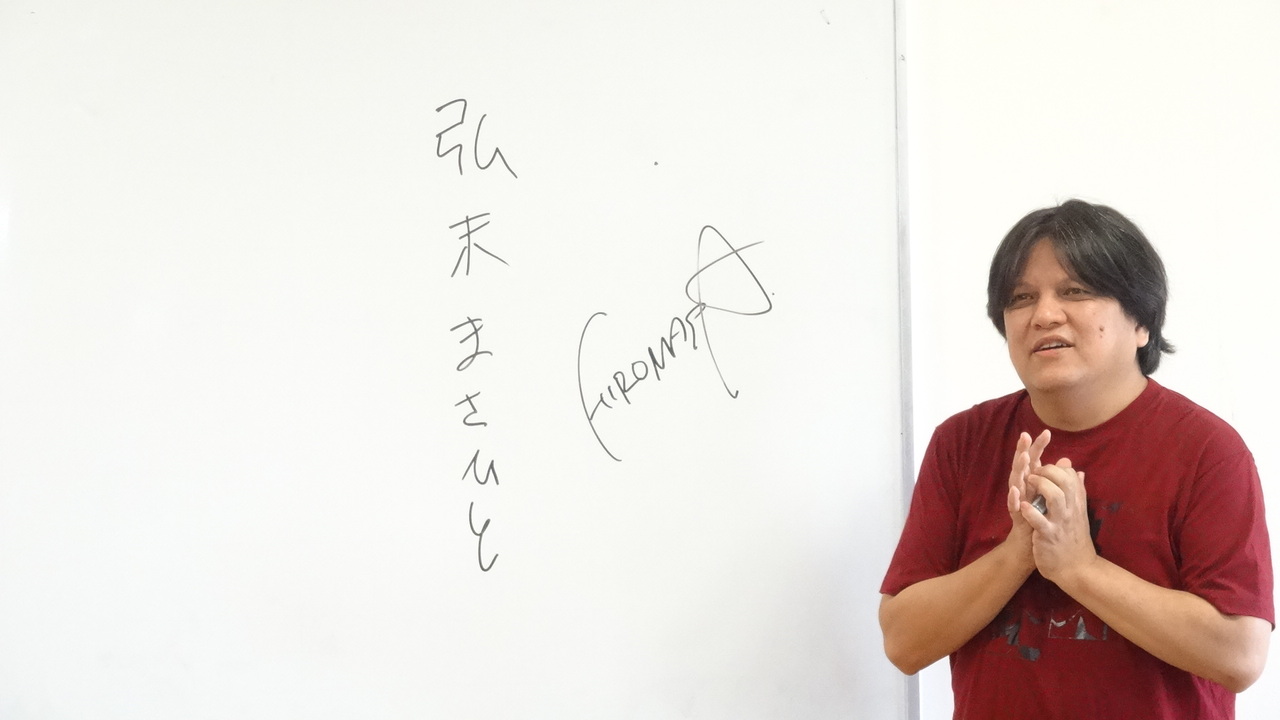 弘末まさひと
HIROMASA